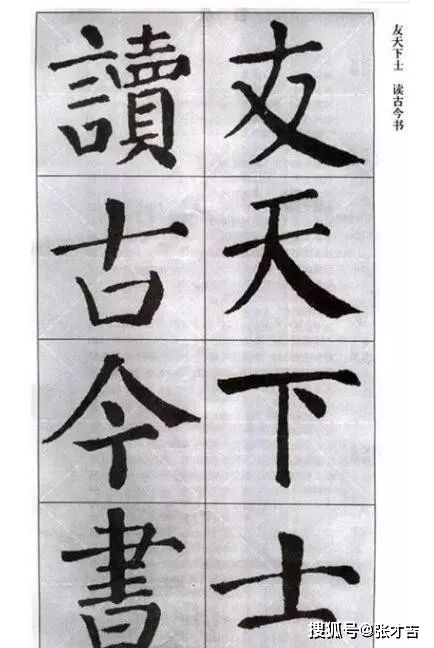 友天下士
讀古今書
友天下士 读古今书
搜狐号@张才吉